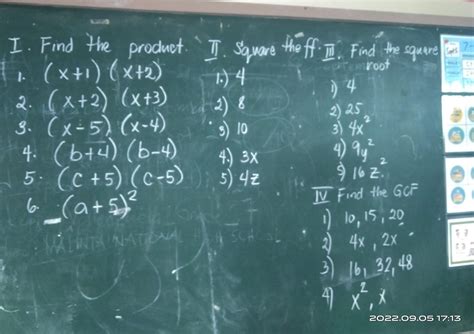 I. Find the product.
1. (x+1) (x+2)
2. (x+2) (x+3)
3. (x-5) (x-4)
4. (b+4) (b-4)
5. (c+5) (c-5)
6. (a+5)²
II. Square the ff.
1.) 4
2.) 8
3.) 10
4.) 3x
5.) 4z
III. Find the square root
1) 4
2) 25
3) 4x²
4) 9y²
5) 16z²
IV Find the GCF
1) 10, 15, 20
2) 4x, 2x
3) 16, 32, 48
4) x², x
2022.09.05 17:13